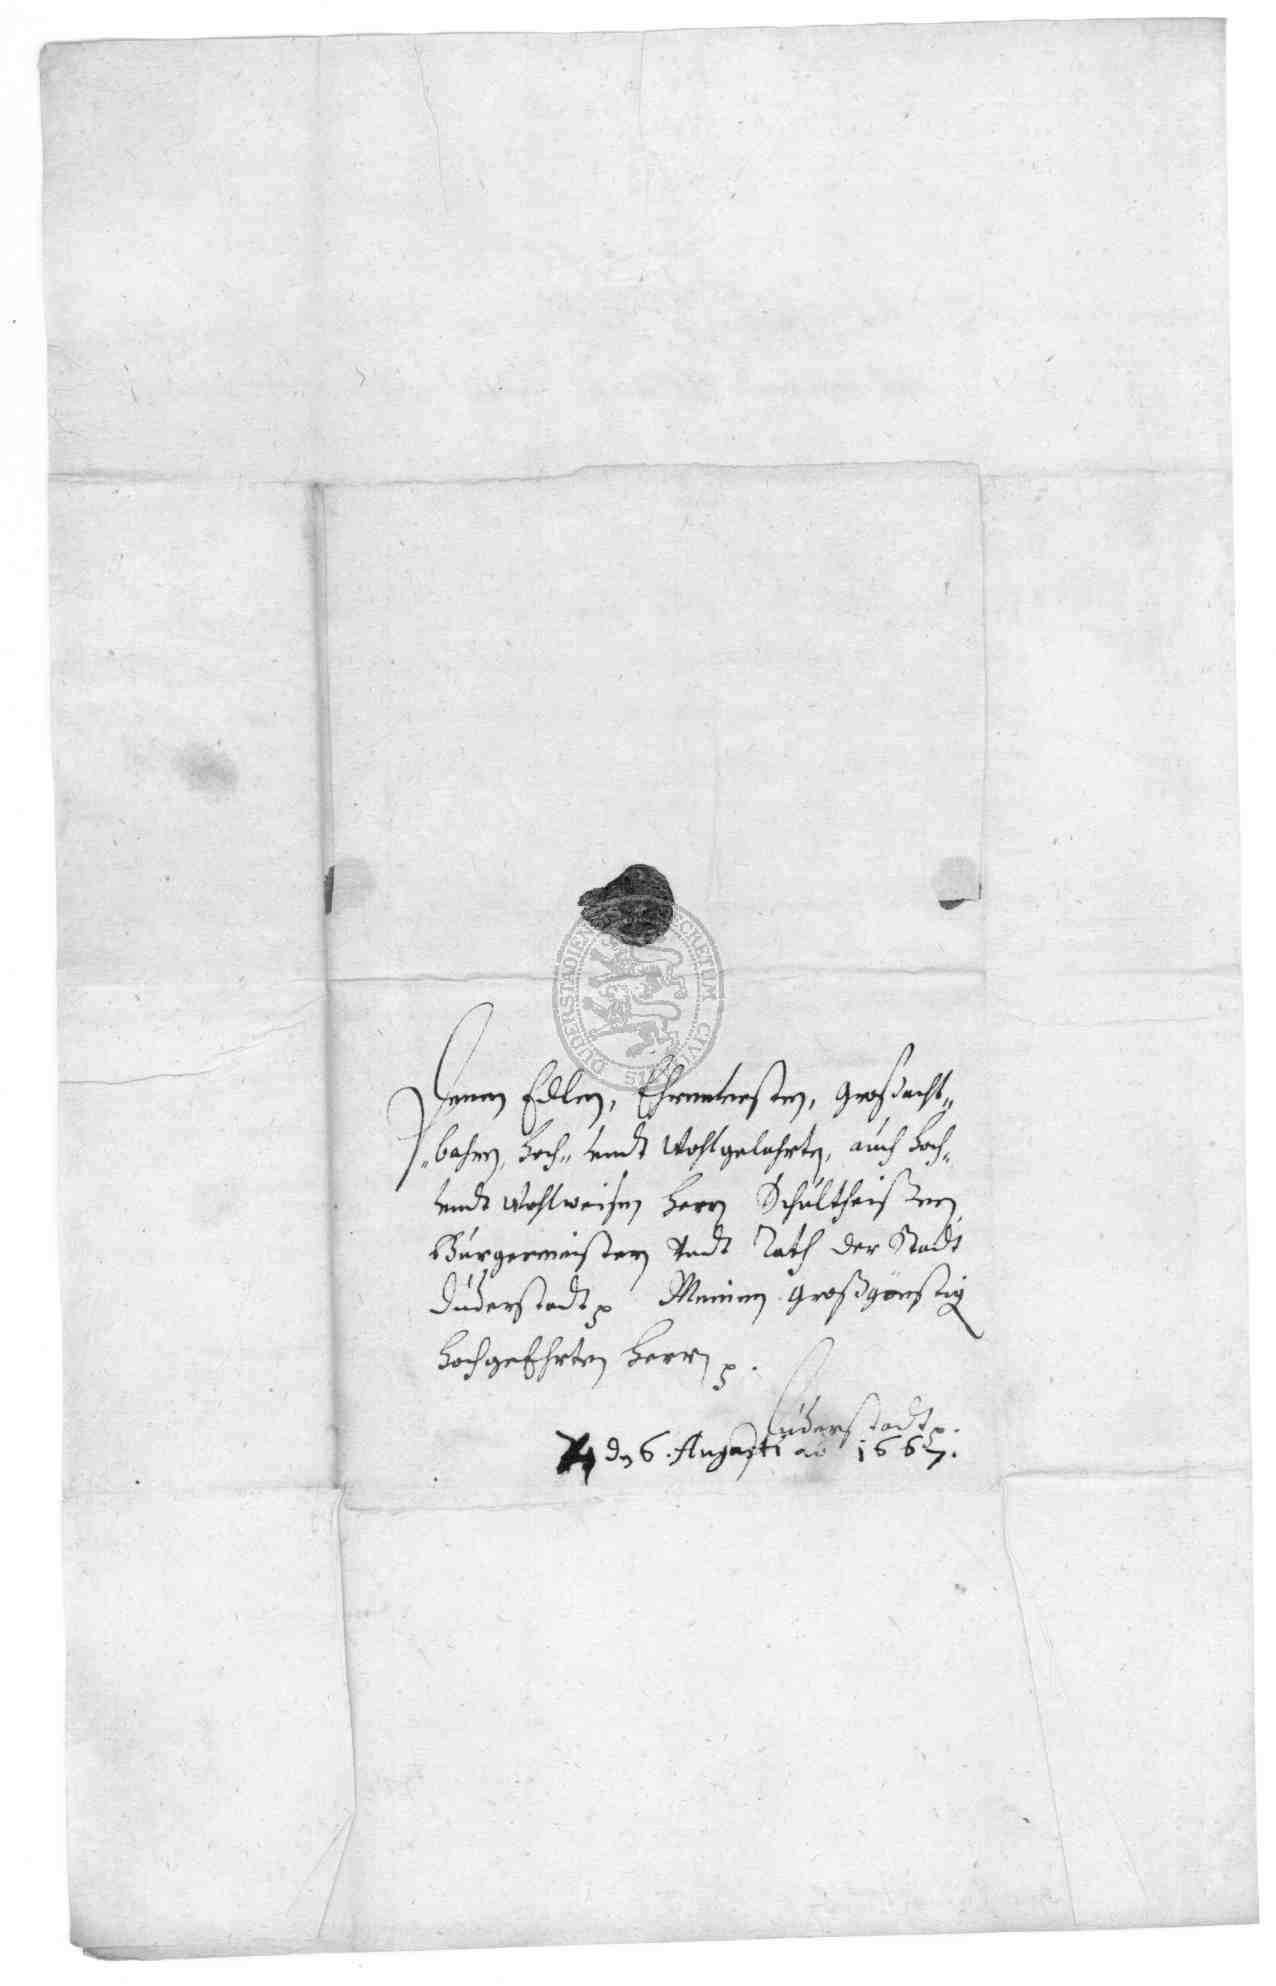 Denen Edlen, Ehrnvesten, Großacht„
„bahren, Hoch„ vndt Wohlgelahrten, auch Hoch„
vndt Wohlweisen Herrn Schultheißen
Bürgermeistern vndt Rath der Stadt
Duderstadt Meinen Großgönstig
HochgeEhrten Herrn
Duderstadt
den 6. Augusti ao 1667.